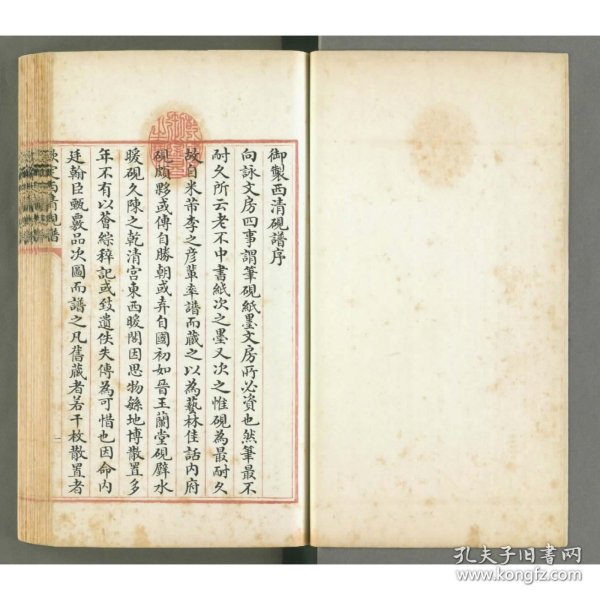 御製西清硯譜序
向詠文房四事謂筆硯紙墨文房所必資也然筆最不
耐久所云老不中書紙次之墨又次之惟硯為最耐久
故自米芾李之彥輩率譜而藏之以為藝林佳話内府
硯頗夥或傳自勝朝或弆自國初如晉玉蘭堂硯璧水
暖硯久陳之乾清宮東西暖閣因思物緜地博散置多
年不有以薈綜稡記或致遺佚失傳為可惜也因命内
廷翰臣甄覈品次圖而譜之凡舊藏者若干枚散置者
西清硯譜
一
孔夫子旧书网
www.kongfz.com